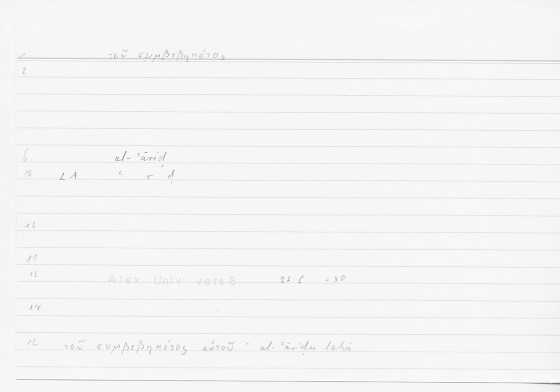 1 τοῦ συμβεβηκότος
2
6 al-ʿāriḍ
LA ʿ r ḍ
12
11
13 Alex Univ vers 227 6 -30
14
τοῦ συμβεβηκότος αὐτοῦ : al-ʿāriḍu lahū